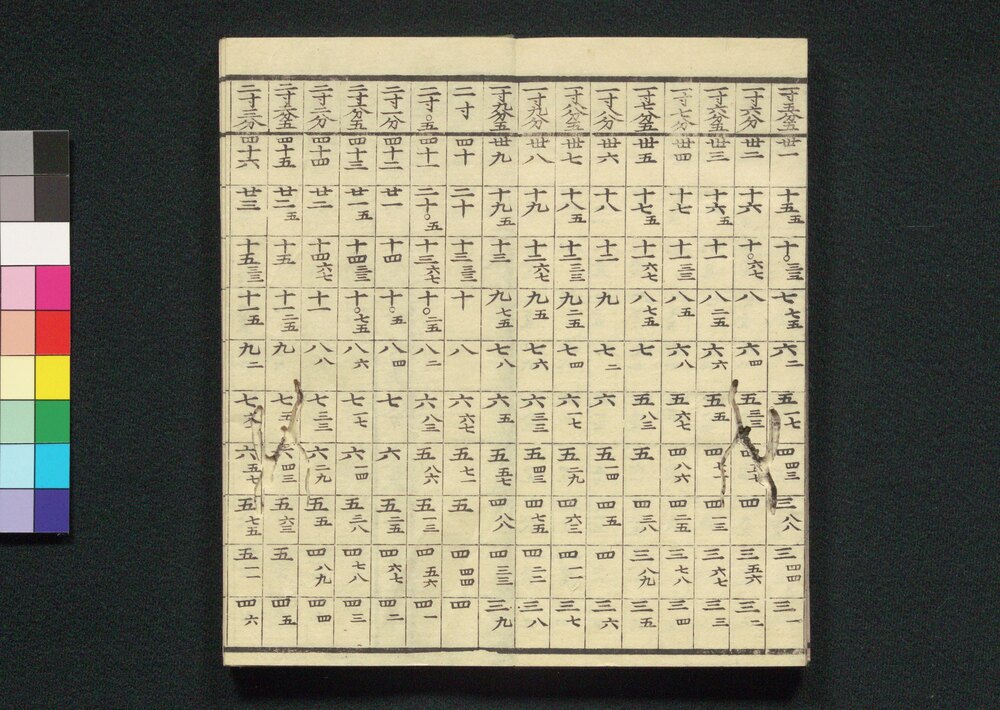 一寸五分五 卅一 十五五 十〇三三 七七五 六二 五一七 四四三 三八八 三四四 三一
一寸六分 卅二 十六 十〇六七 八 六四 五三三 四五七 四 三五六 三二
一寸六分五 卅三 十六五 十一 八二五 六六 五五 四七一 四一三 三六七 三三
一寸七分 卅四 十七 十一三三 八五 六八 五六七 四八六 四二五 三七八 三四
一寸七分五 卅五 十七五 十一六七 八七五 七 五八三 五 四三八 三八九 三五
一寸八分 卅六 十八 十二 九 七二 六 五一四 四五 四 三六
一寸八分五 卅七 十八五 十二三三 九二五 七四 六一七 五二九 四六三 四一一 三七
一寸九分 卅八 十九 十二六七 九五 七六 六三三 五四三 四七五 四二二 三八
一寸九分五 卅九 十九五 十三 九七五 七八 六五 五五七 四八八 四三三 三九
二寸 四十 二十 十三三三 十 八 六六七 五七一 五 四四四 四
二寸〇五 四十一 二十〇五 十三六七 十〇二五 八二 六八三 五八六 五一三 四五六 四一
二寸一分 四十二 廿一 十四 十〇五 八四 七 六 五二五 四六七 四二
二寸一分五 四十三 廿一五 十四三三 十〇七五 八六 七一七 六一四 五三八 四七八 四三
二寸二分 四十四 廿二 十四六七 十一 八八 七三三 六二九 五五 四八九 四四
二寸二分五 四十五 廿二五 十五 十一二五 九 七五 六四三 五六三 五 四五
二寸三分 四十六 廿三 十五三三 十一五 九二 七六七 六五七 五七五 五一一 四六